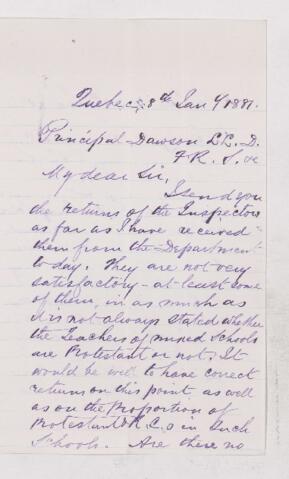 Quebec, 8th Jany 1881.
Principal Dawson LL. D.
F. R. S. &c
My dear Sir,
I send you
the returns of the Inspectors
as far as I have received
them from the Department
to day. They are not very
satisfactory - at least some
of them, in as much as
it is not always stated whether
the Teachers of mixed Schools
are Protestant or not. It
would be well to have correct
returns on this point, as well
as on the Proportion of
Protestant & R. C.s in such
Schools. Are there no